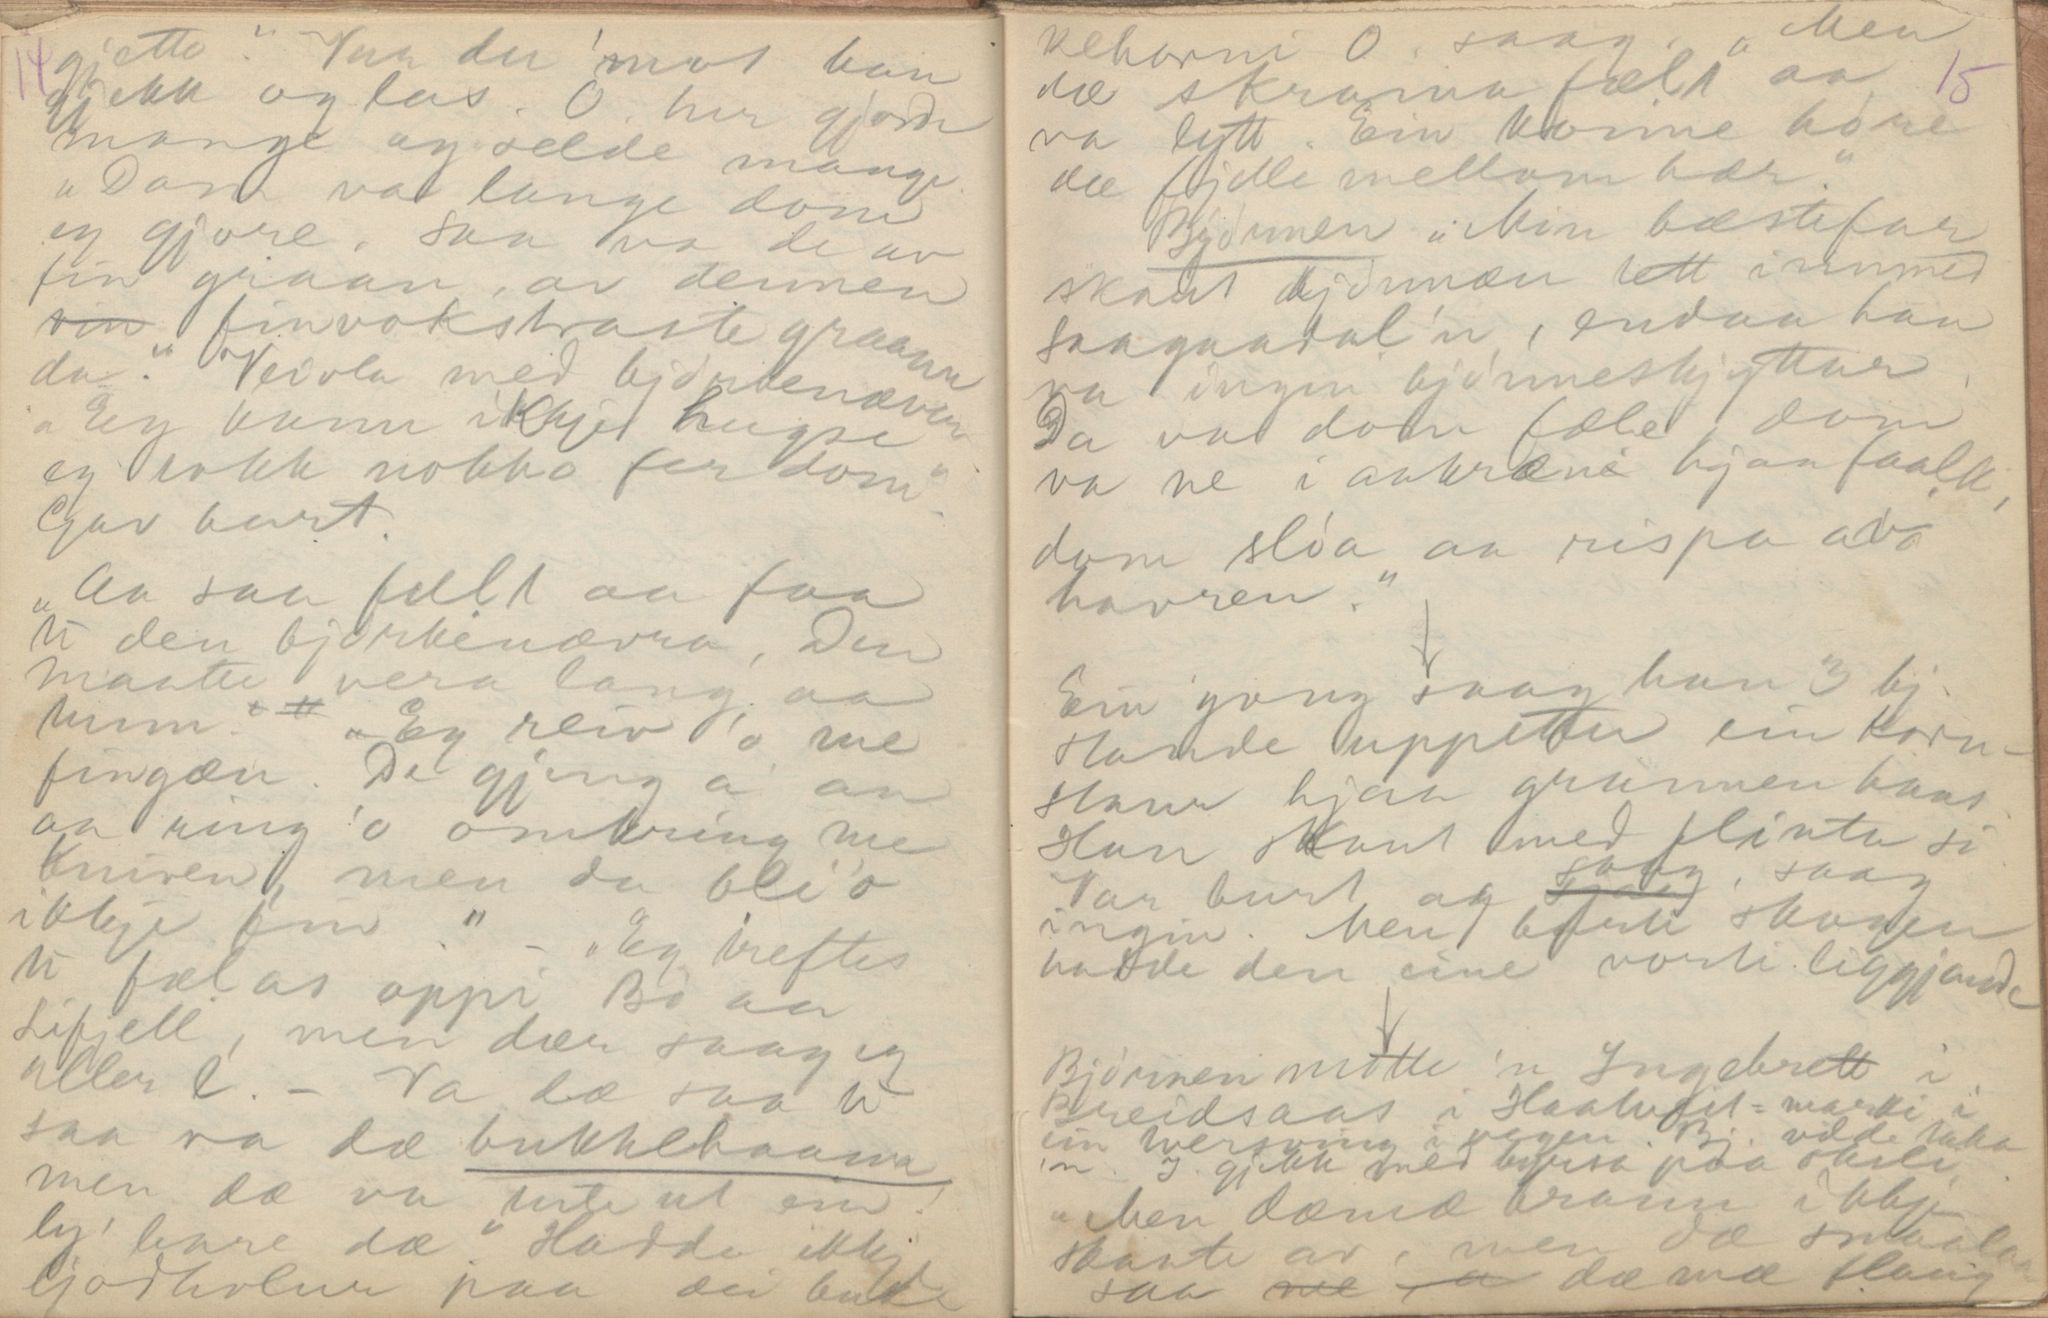 14
gjette." Var du imot han
gjekk og las. O. her gjorde
mange og selde mange.
"Dom va lange dom
eg gjore, saa va de av
fin graan, av dennen
sin finvokstraste graann
da." Veivla med bjørkenæver
"Eg kann ikkje hugse
eg tokk nokko fer dom"
Gav burt.
"Aa saa fælt aa faa
ti den bjørkenævra, Den
maatte vera lang aa
tunn." "Eg reiv 'o me
fingæn. De gjeng a an
aa ring 'o omkring me
kniven, men da bli 'o
ikkje fin." - "Eg treftes
ti fælas oppi Bø aa
Lifjell, men dær saag eg
aller l. - Va dæ saa ti
saa va dæ bukkehaarna
men dæ va inte ut ein
ly' bare dæ." Hadde ikkj
ljodholur paa dei bukke
15
kehorni O. saag. "Men
dæ skrama fælt aa
va lytt. Ein konne høre
dæ fjelle mellom hær."
Bjørnen "Min bæstefar
skaut bjørnæn tett innmed
Saagaadal'n, endaa han
va ingin bjørneskyttar.
Da va dom fæle, dom
va ne i aakræne hjaa faalk,
dom sloa aa rispa ava
havren."
Ein gong saag han 3 bj.
stande uppetter ein korn-
staur hjaa grannen hans.
Han skaut med flinta si
Var burt og saag, saag
ingin. Men burti skogen
hadde den eine vorti liggjande
Bjørnen møtte 'n Ingebrett i
Breidsaas i Haatveit-marki i
ein tversving i vegen. Bj. vilde taka
'n. I. gjekk med byrsa paa
"Men dæmæ brann ikkje
skaute av, men dæ smaala
saa dæ mæ flaug